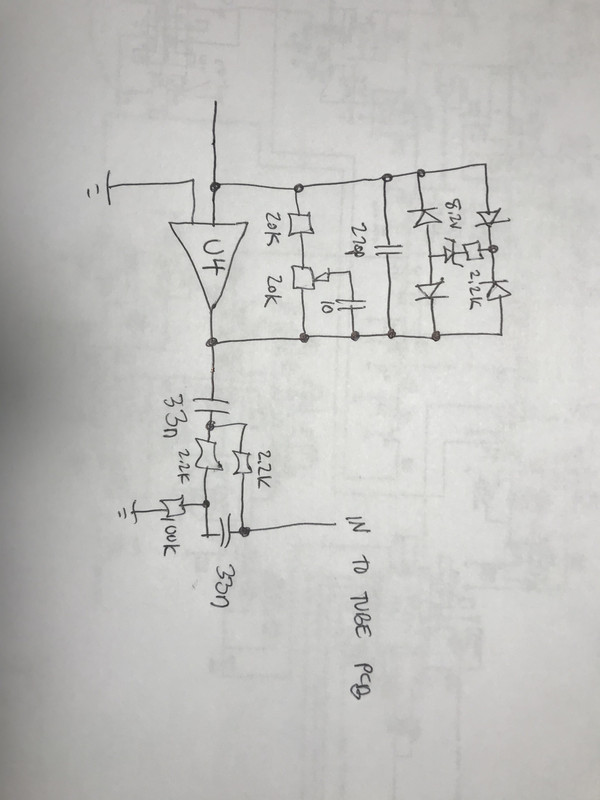 U4
20K
20K
10
220p
8.2V
2.2K
33n
2.2K
2.2K
100K
33n
IN TO TUBE PCB